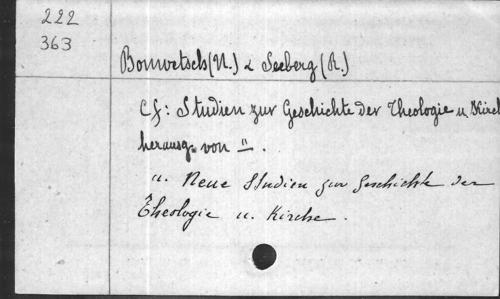 222
363
Bonwetsch (N.) & Seeberg (R.)
Cf: Studien zur Geschichte der Theologie u. Kirch
herausg. von " .
u. Neue Studien zur Geschichte der
Theologie u. Kirche.